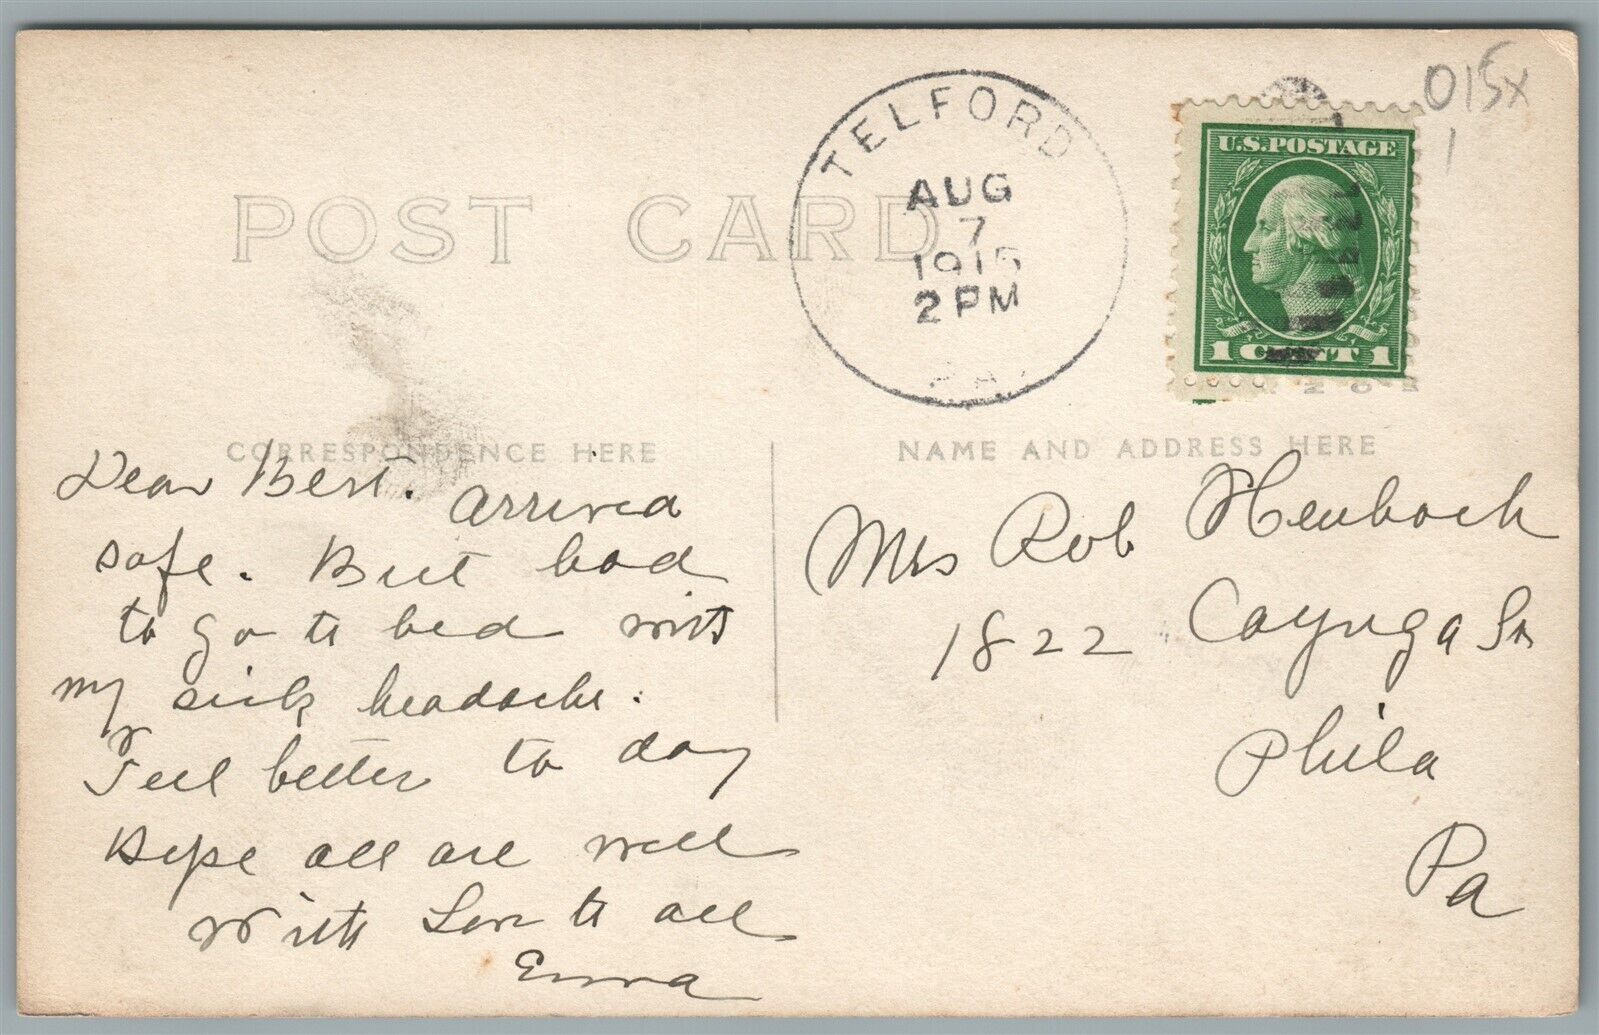 POST CARD
TELFORD
AUG
7
1915
2 PM
PA.
U.S. POSTAGE
1 CENT 1
015x
1
CORRESPONDENCE HERE
NAME AND ADDRESS HERE
Dear Bert. arrived
safe. But had
to go to bed with
my sick headache.
Feel better to day
Hope all are well
With Love to all
Emma
Mrs Rob
1822 Cayuga St
Phila
Pa